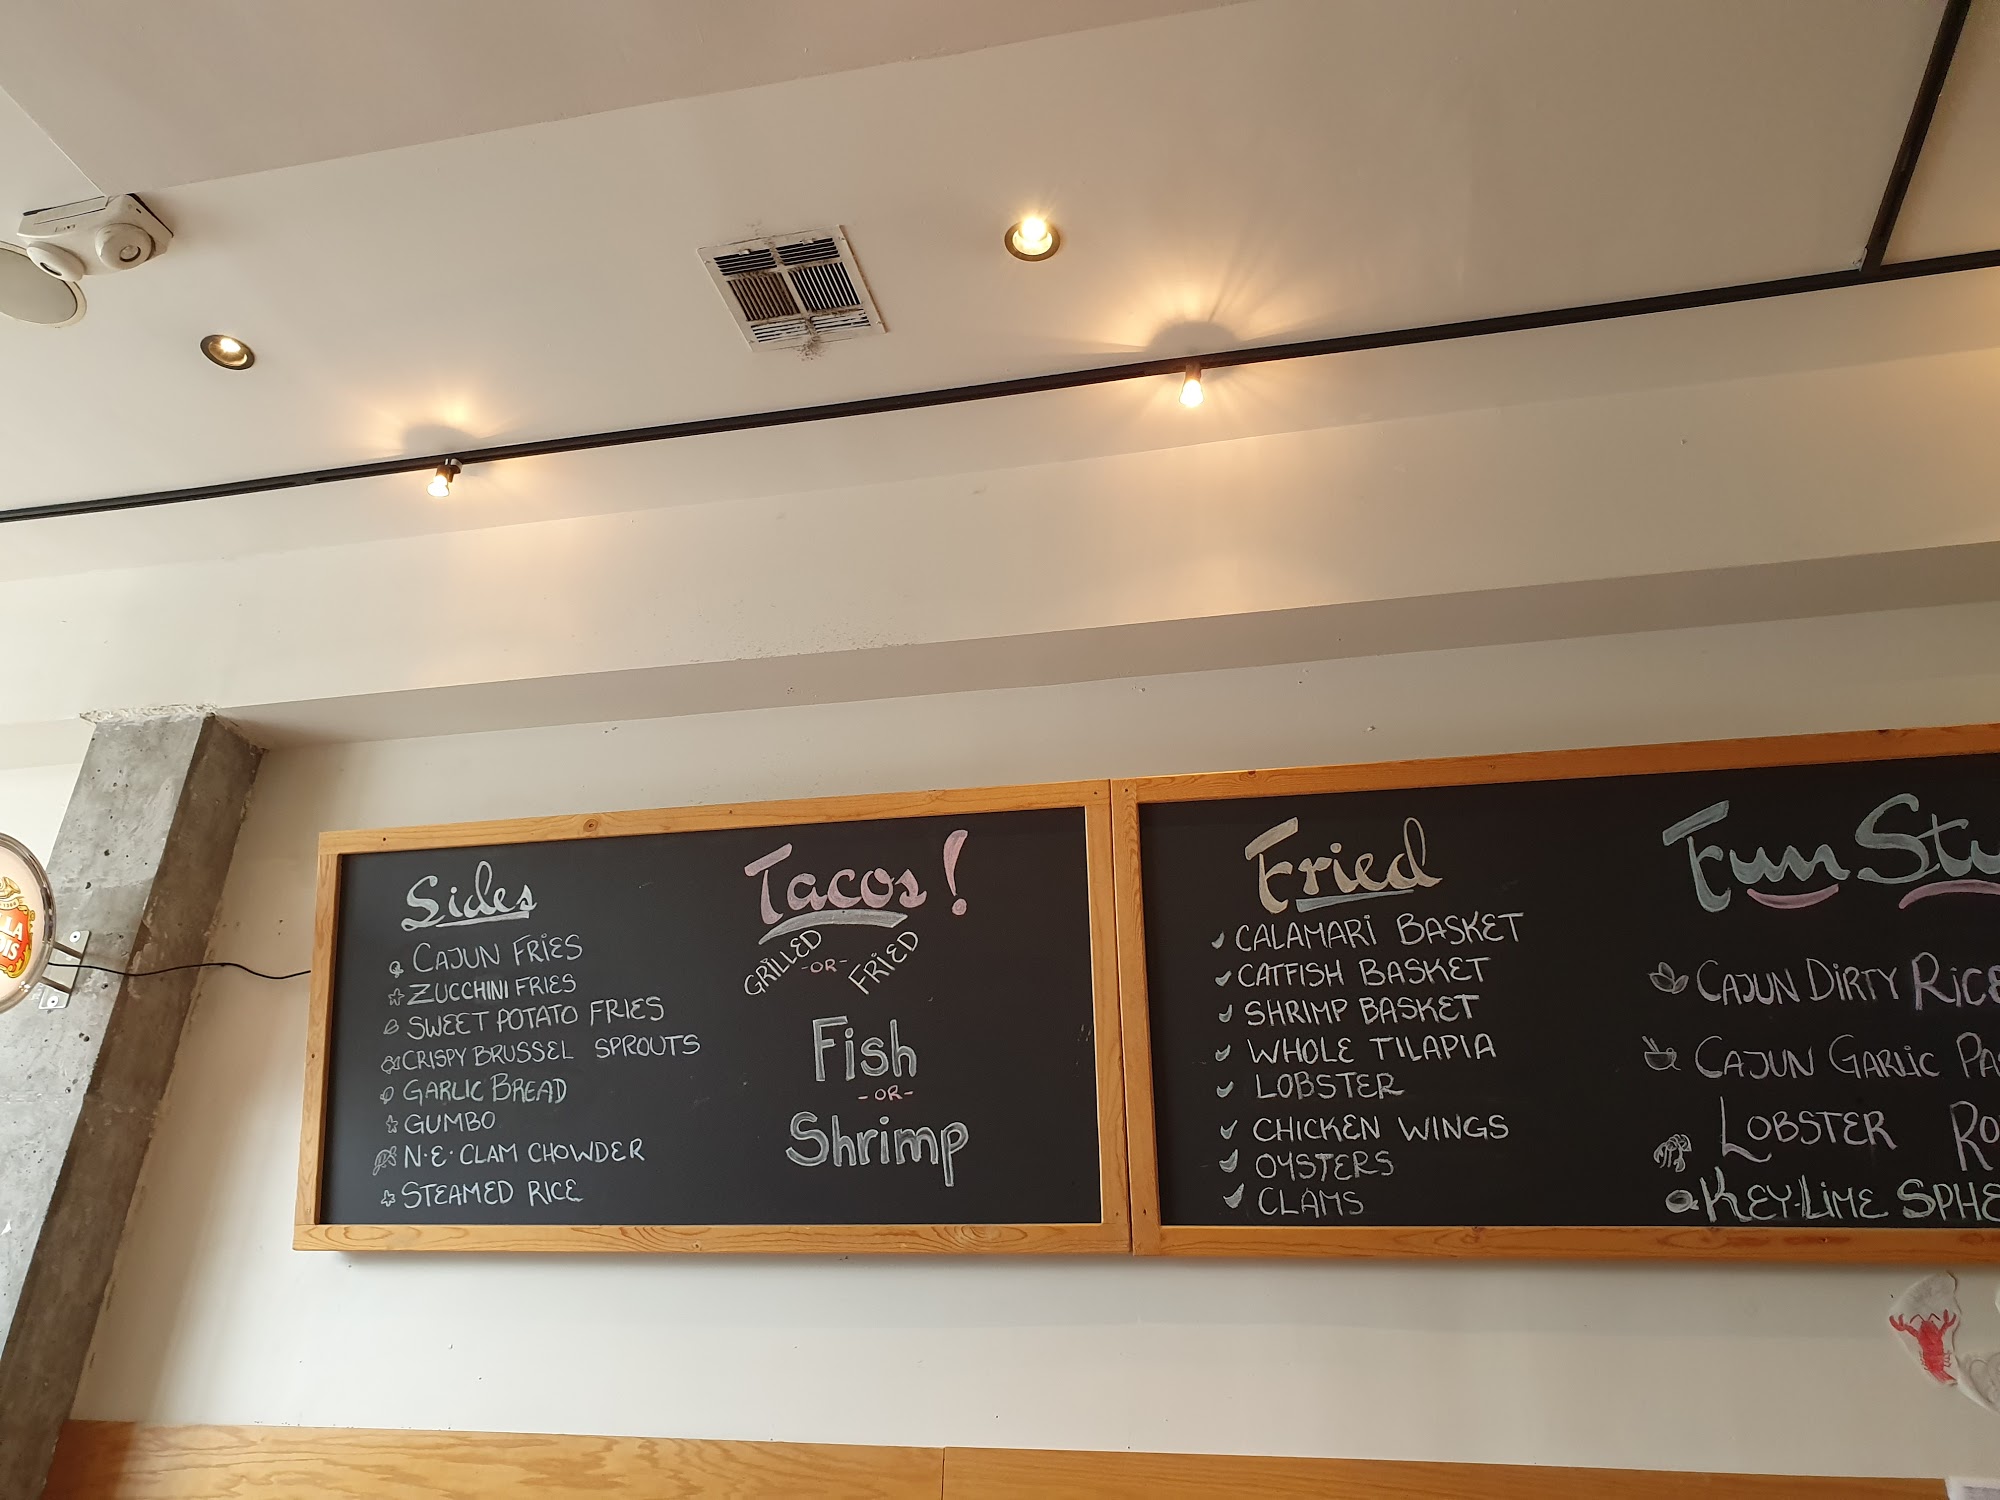 Sides
CAJUN FRIES
ZUCCHINI FRIES
SWEET POTATO FRIES
CRISPY BRUSSEL SPROUTS
GARLIC BREAD
GUMBO
N.E. CLAM CHOWDER
STEAMED RICE
Tacos!
GRILLED -OR- FRIED
Fish
-OR-
Shrimp
Fried
CALAMARI BASKET
CATFISH BASKET
SHRIMP BASKET
WHOLE TILAPIA
LOBSTER
CHICKEN WINGS
OYSTERS
CLAMS
Fun
CAJUN DIRTY RICE
CAJUN GARLIC
LOBSTER
KEY-LIME